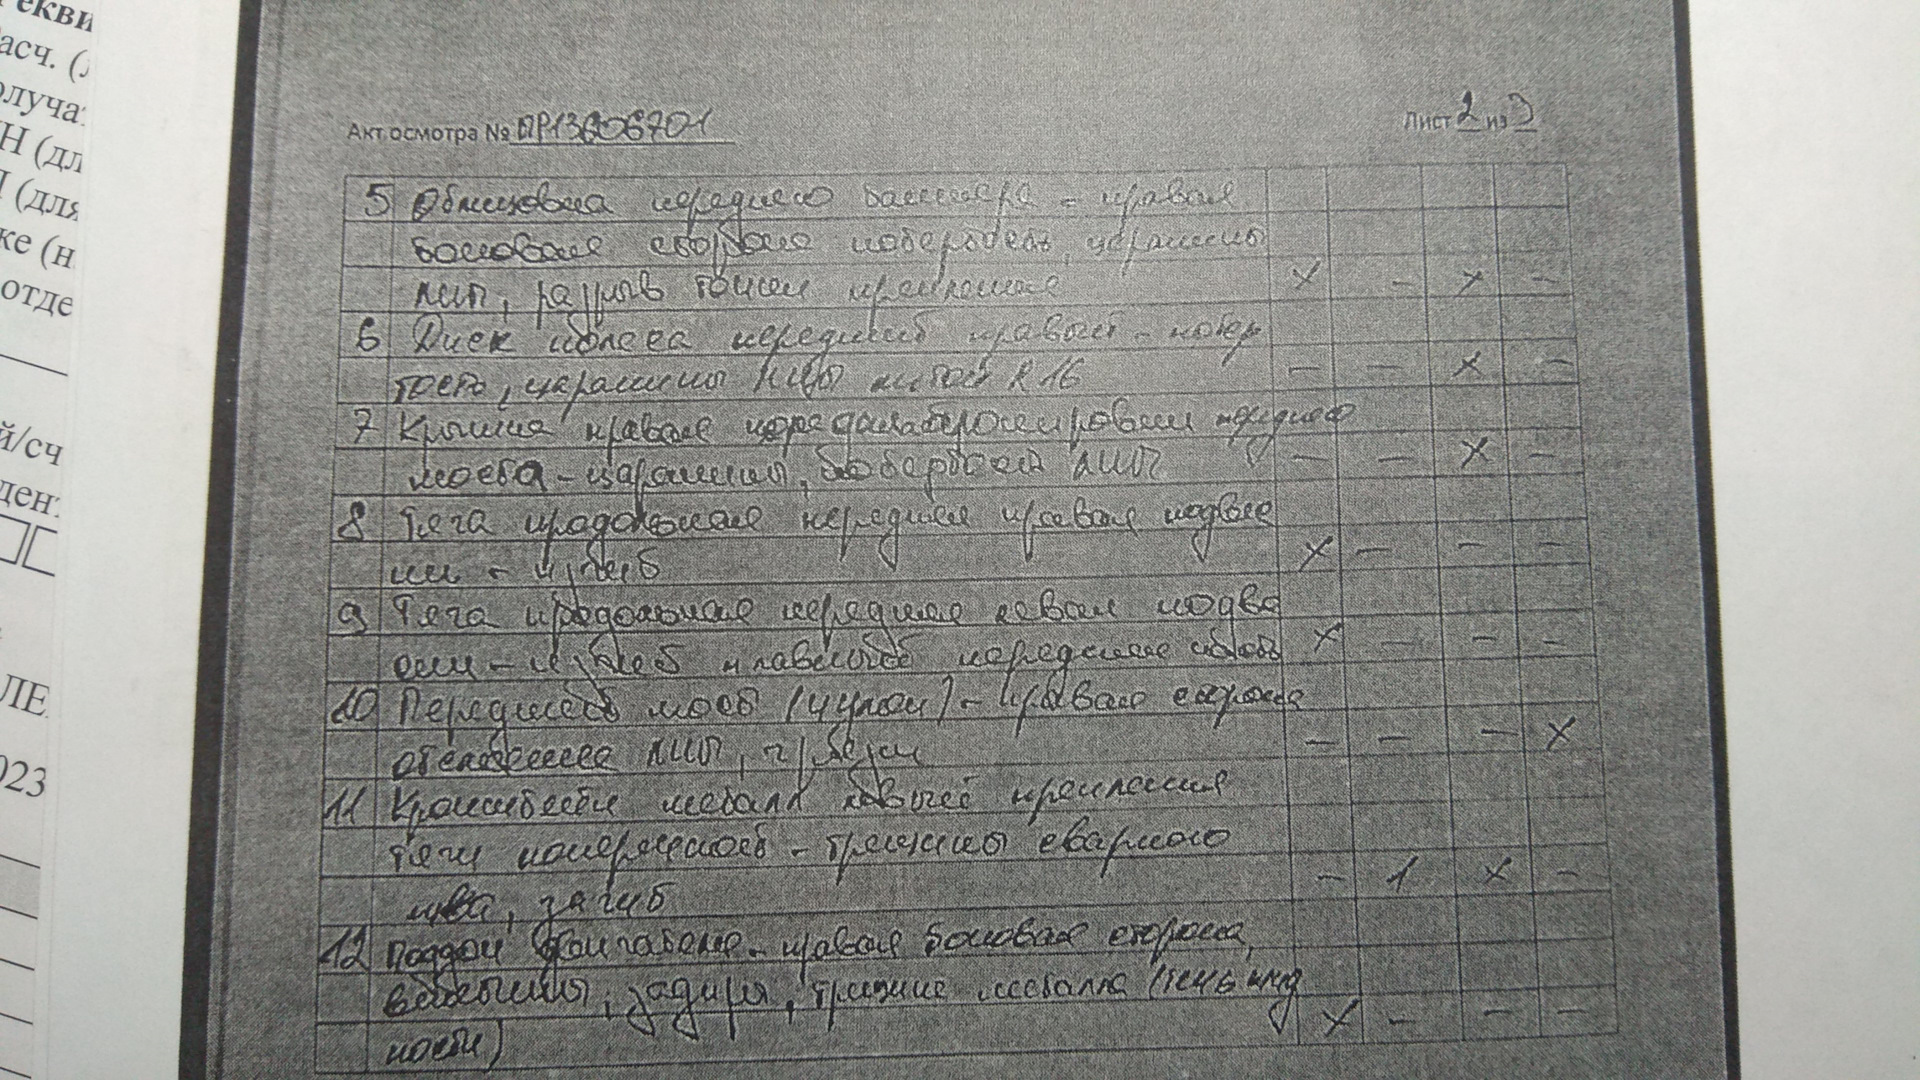 екви
асч. (
олуча
Н (дл
(для
ке (н
отде
й/сч
ден
ЛЕ
023
Акт осмотра № ПР13606701
Лист 2 из 3
5 Облицовка переднего бампера - правая
боковая сторона потертость, царапины
ЛКП, разрыв точки крепления X - X -
6 Диск колеса передний правый - потер
тость, царапины ЛКП литой R 16 - - X -
7 Крышка правая переднего
моста - царапины, потертости ЛКП - - X -
8 Тяга продольная передняя правая подвес
ки - изгиб X - - -
9 Тяга продольная передняя левая подве
ски - изгиб передняя X - - -
10 Передний мост (чулок) - правая сторона
отслоение ЛКП - - - X
11 Кронштейн металл левый крепления
тяги поперечной - трещины сварного
шва, загиб - 1 X -
12 Поддон - правая боковая сторона,
задиры, трещина металла (течь жид
кости) X - - -